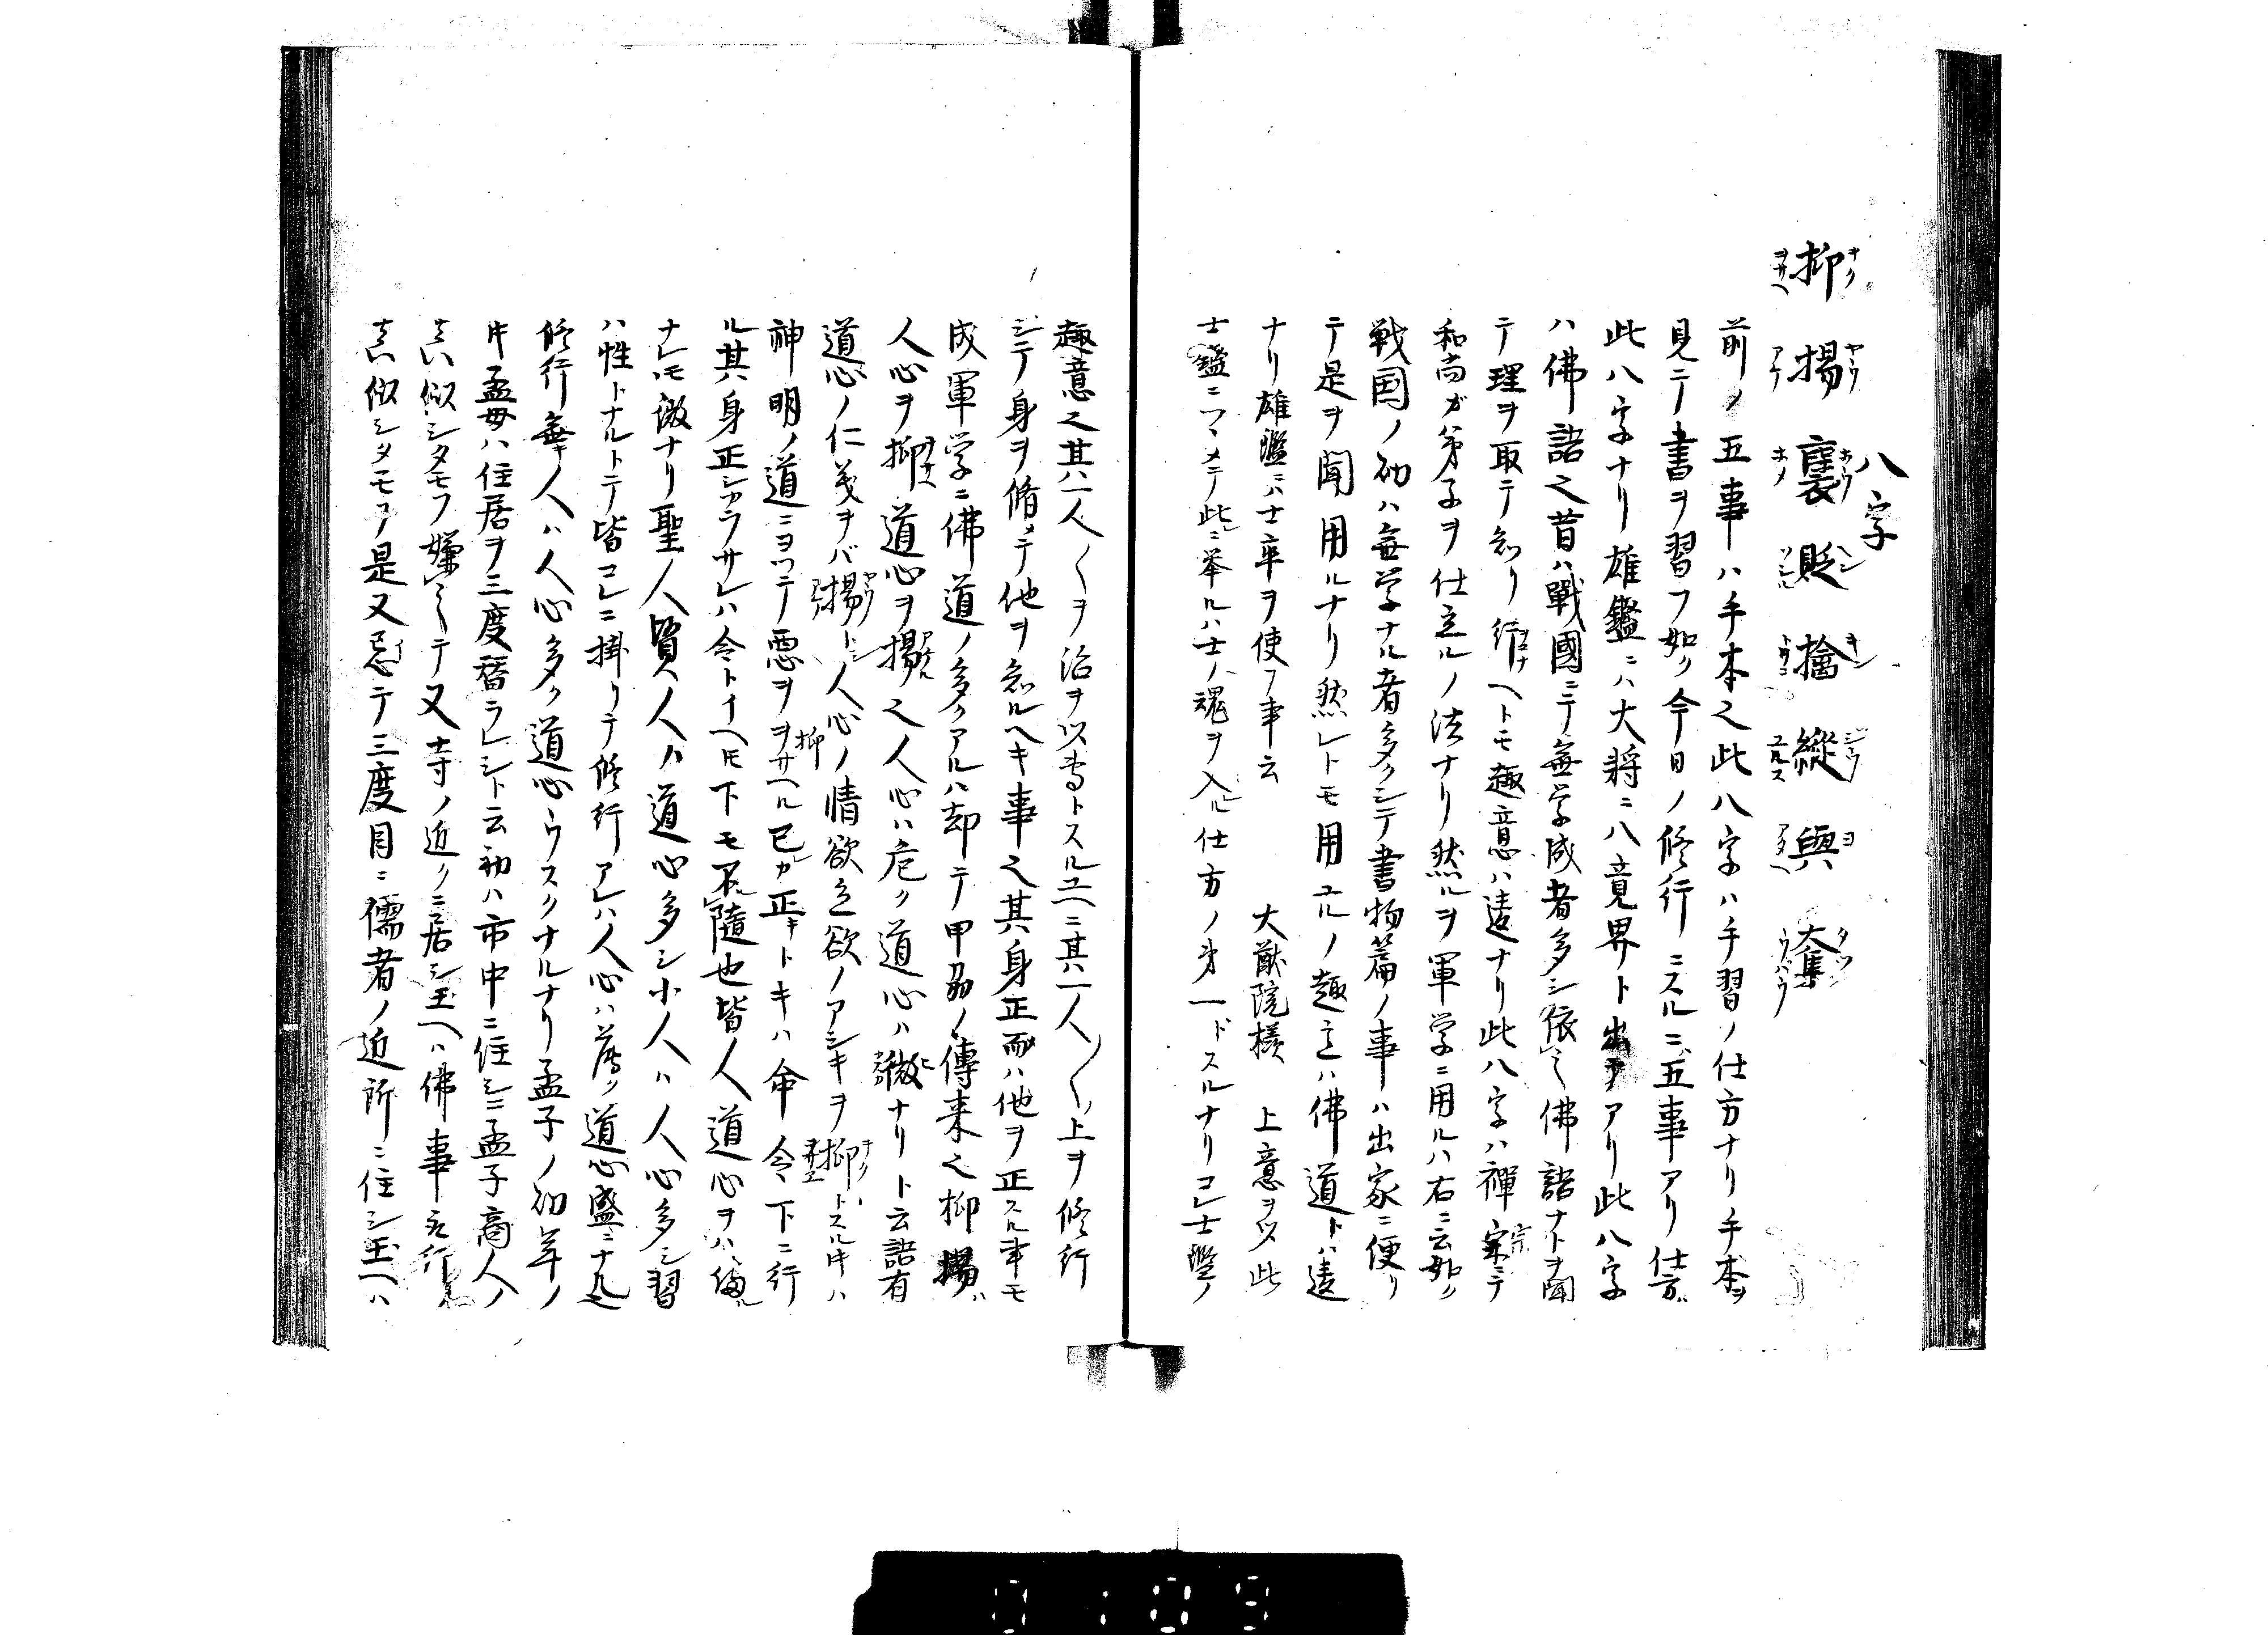 八字
抑揚褒貶擒縦與奪
前ノ五事ハ手本之此八字ハ手習ノ仕方ナリ手本ヲ
見テ書ヲ習フ如ク今日ノ修行ニスルニ五事アリ仕方ガ
此八字ナリ雄鑑ニハ大将ニ八竟界ト出テアリ此八字
ハ佛語之昔ハ戰國ニテ無学成者多シ依之佛語ナトヲ聞
テ理ヲ取テ知リ行ヘトモ趣意ハ違ナリ此八字ハ禪宗ニテ
和尚ガ弟子ヲ仕立ルノ法ナリ然ルヲ軍学ニ用ルハ右ニ云如ク
戦国ノ初ハ無学ナル者多クシテ書物篇ノ事ハ出家ニ便リ
テ是ヲ聞用ルナリ然レトモ用ユルノ趣意ハ佛道トハ違
ナリ雄鑑ニハ士卒ヲ使フ事云 大猷院様 上意ヲ以此
士鑑ニツヽメテ此ニ挙ルハ士ノ魂ヲ入ル仕方ノ第一ドスルナリコレ士鑑ノ
趣意之其一人〱ヲ治ヲ以専トスルユヘニ其一人〱上ヲ修行
シテ身ヲ脩メテ他ヲ知ルヘキ事之其身正而ハ他ヲ正スル事モ
成軍学ニ佛道ノ多クアルハ却テ甲刕ノ傳来之抑揚ハ
人心ヲ抑道心ヲ揚之人心ハ危ク道心ハ微ナリト云語有
道心ノ仁義ヲバ揚トシ人心ノ情欲立欲ノアシキヲ抑トスル時ハ
神明ノ道ニヨツテ悪ヲヲサヘル已カ正キトキハ命令下ニ行
ル其身正シカラサレハ令トイヘ𪜈下モ不隨也皆人道心ヲハ備ル
ナレ𪜈微ナリ聖人賢人ノ人ハ道心多シ小人ハ人心多シ習
ハ性トナルトテ皆コレニ掛リテ修行アレハ人心ハ薄ク道心盛ニナル之
修行無人ハ人心多ク道心ウスクナルナリ孟子ノ初年ノ
時孟母ハ住居ヲ三度替ラレシト云初ハ市中ニ住シニ孟子商人ノ
真似シタモフ嫌之テ又寺ノ近クニ居シ玉ヘハ佛事ヲ行
真似シタモフ是又忌テ三度目ニ儒者ノ近所ニ住シ玉ヘハ